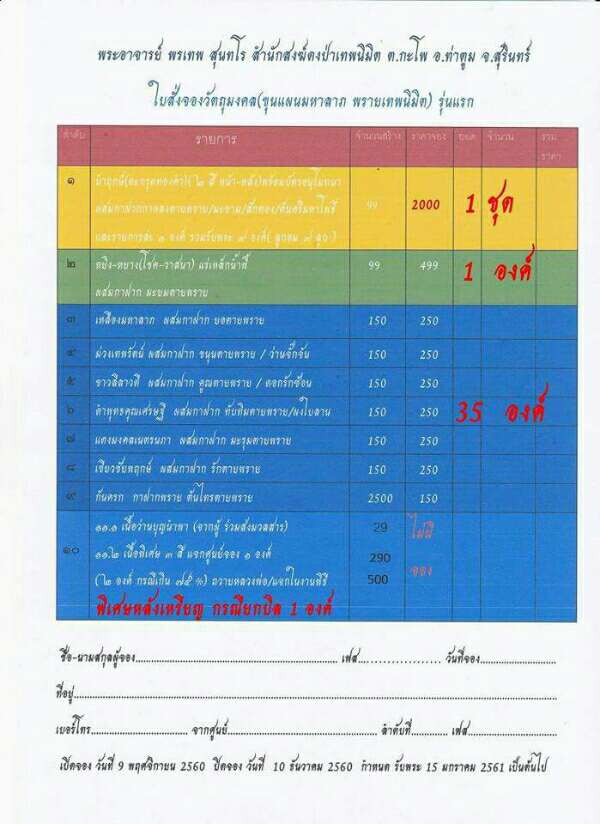 พระอาจารย์ พรเทพ สุนทโร สำนักสงฆ์ดงป่าเทพนิมิต ต.กะโพ อ.ท่าตูม จ.สุรินทร์
ใบสั่งจองวัตถุมงคล(ขุนแผนมหาลาภ พรายเทพนิมิต) รุ่นแรก
ลำดับ รายการ จำนวนสร้าง ราคาจอง ยอด จำนวน รวม ราคา
๑ นำฤกษ์(ตะกรุดทองคำ)( ๒ สี หน้า-หลัง)พร้อมบัตรอนุโมทนา 99 2000 1 ชุด
และรายการละ ๑ องค์ รวมรับพระ ๙ องค์( ลุกอม ๙ ลูก)
๒ หยิน-หยาง(โชค-วาสนา) แร่เหล็กน้ำพี้ 99 499 1 องค์
ผสมกาฝาก มะยมตายพราย
๓ เหลืองมหาลาภ ผสมกาฝาก ยอตายพราย 150 250
๔ ม่วงเทพรัตน์ ผสมกาฝาก ขนุนตายพราย / ว่านจั๊กจั่น 150 250
๕ ขาวลีลาวดี ผสมกาฝาก คูณตายพราย / ดอกรักซ้อน 150 250
๖ ดำพุทธคุณเศรษฐี ผสมกาฝาก ทับทิมตายพราย/ผงใบลาน 150 250 35 องค์
๗ แดงมงคลเนตรนภา ผสมกาฝาก มะรุมตายพราย 150 250
๘ เขียวชัยพฤกษ์ ผสมกาฝาก รักตายพราย 150 250
๙ ก้นครก กาฝากพราย ต้นไทรตายพราย 2500 150
๑๐ ๑๑.๑ เนื้อว่านบุญนำพา (จากผู้ ร่วมส่งมวลสาร) 29 ไม่มี
๑๑.๒ เนื้อพิเศษ ๓ สี แจกศูนย์จอง ๑ องค์ 290 จอง
(๒ องค์ กรณีเกิน ๗๕ %) ถวายหลวงพ่อ/แจกในงานพิธี 500
พิเศษหลังเหรียญ กรณียกบิล 1 องค์
ชื่อ-นามสกุลผู้จอง เฟส วันที่จอง
ที่อยู่
เบอร์โทร จากศูนย์ ลำดับที่ เฟส
เปิดจอง วันที่ 9 พฤศจิกายน 2560 ปิดจอง วันที่ 10 ธันวาคม 2560 กำหนด รับพระ 15 มกราคม 2561 เป็นต้นไป